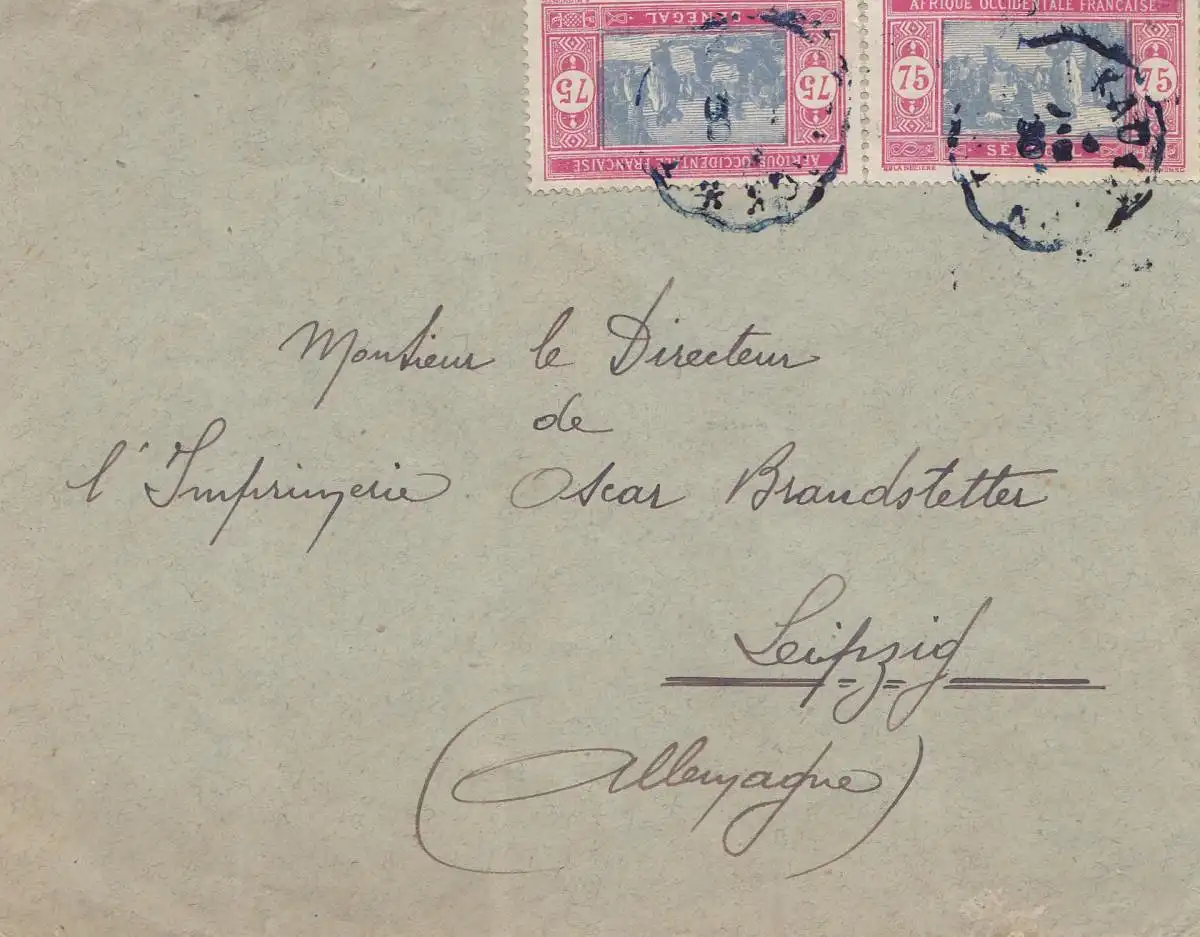 SÉNÉGAL
75 75
AFRIQUE OCCIDENTALE FRANÇAISE
AFRIQUE OCCIDENTALE FRANÇAISE
75 75
Monsieur le Directeur
de
l'Imprimerie Oscar Brandstetter
Leipzig
(Allemagne)